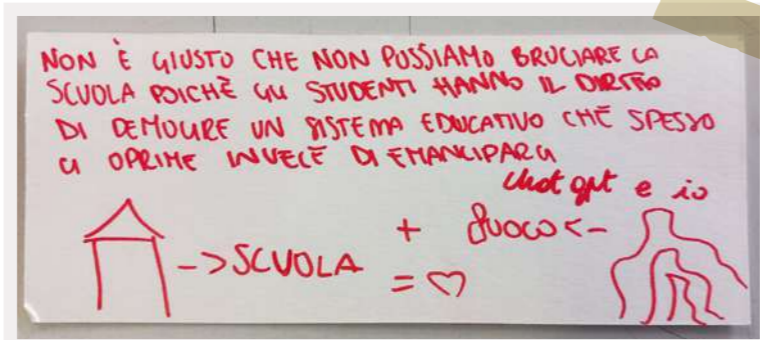 NON È GIUSTO CHE NON POSSIAMO BRUCIARE LA
SCUOLA POICHÈ GLI STUDENTI HANNO IL DIRITTO
DI DEMOLIRE UN SISTEMA EDUCATIVO CHE SPESSO
CI OPRIME INVECE DI EMANCIPARCI
Chat gpt e io
-> SCUOLA + fuoco <-
= ♡